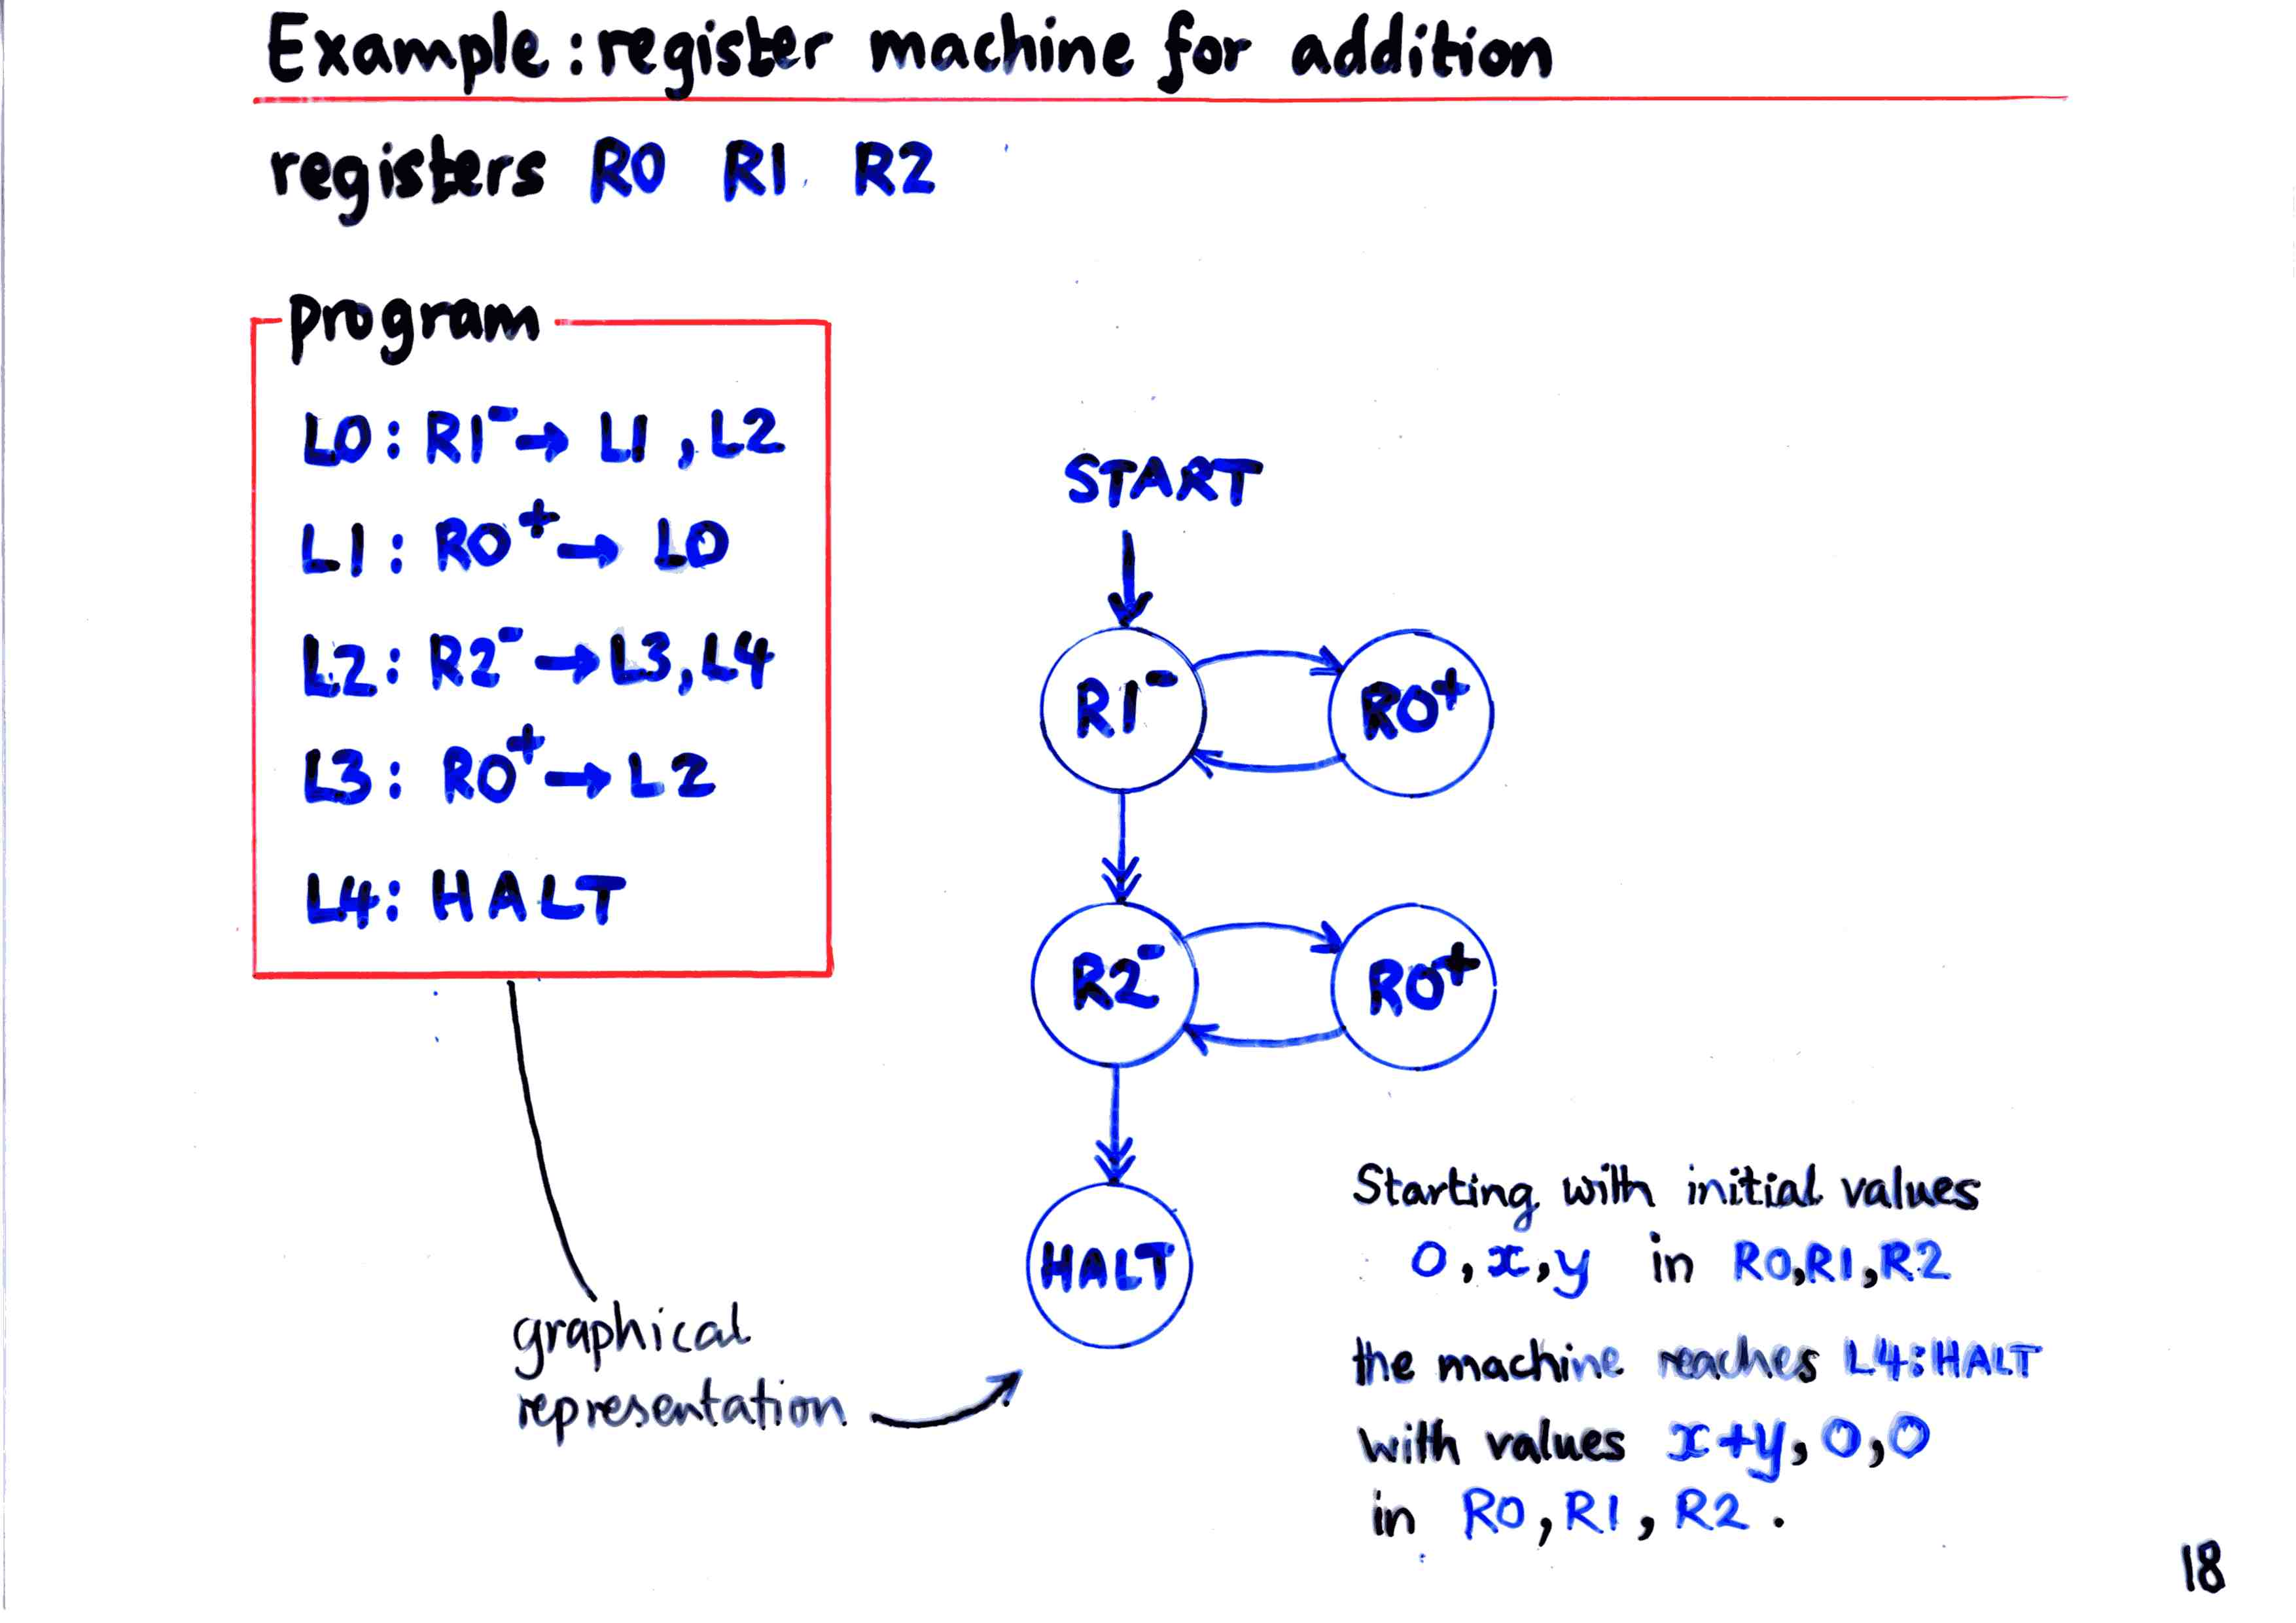 Example: register machine for addition
registers R0 R1 R2
program
L0: R1⁻ → L1, L2
L1: R0⁺ → L0
L2: R2⁻ → L3, L4
L3: R0⁺ → L2
L4: HALT
graphical
representation
START
R1⁻ R0⁺
R2⁻ R0⁺
HALT
Starting with initial values
0, x, y in R0, R1, R2
the machine reaches L4: HALT
with values x+y, 0, 0
in R0, R1, R2.
18